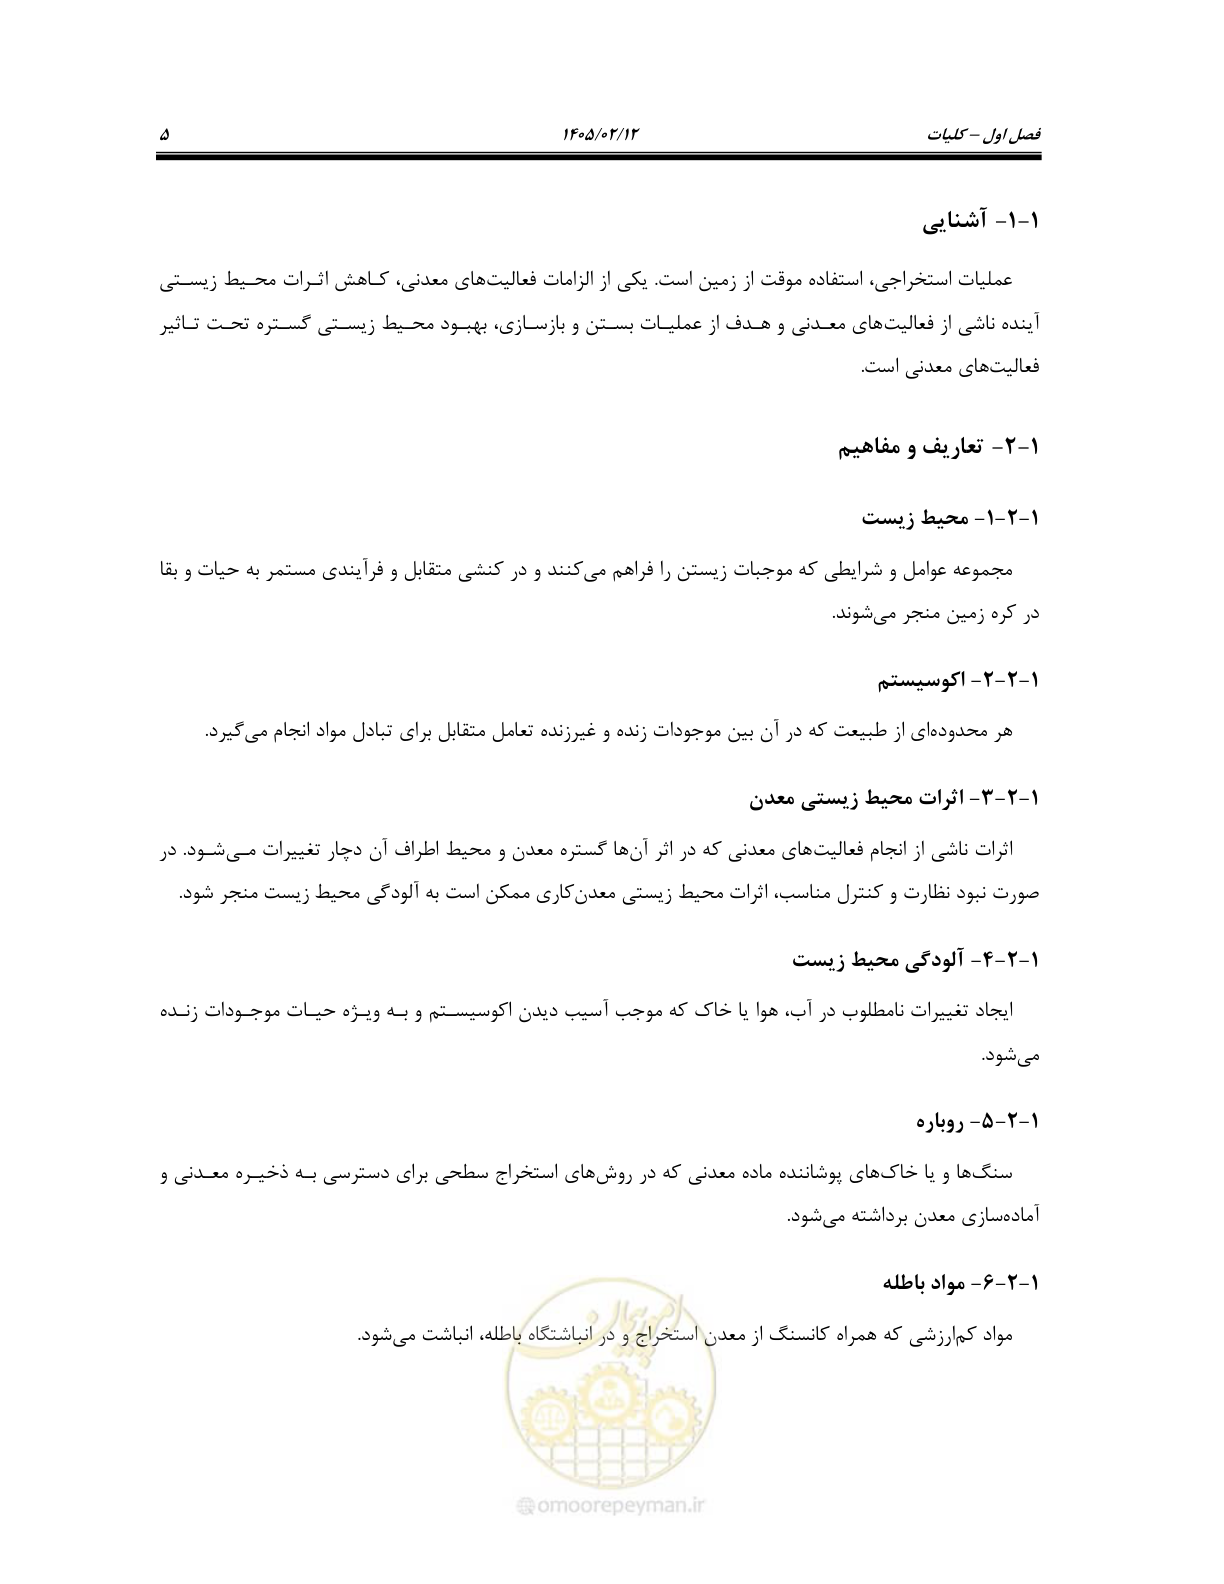 فصل اول – کلیات ۱۴۰۵/۰۲/۱۲ ۵
۱-۱- آشنایی
عملیات استخراجی، استفاده موقت از زمین است. یکی از الزامات فعالیت‌های معدنی، کاهش اثرات محیط زیستی
آینده ناشی از فعالیت‌های معدنی و هدف از عملیات بستن و بازسازی، بهبود محیط زیستی گستره تحت تاثیر
فعالیت‌های معدنی است.
۱-۲- تعاریف و مفاهیم
۱-۲-۱- محیط زیست
مجموعه عوامل و شرایطی که موجبات زیستن را فراهم می‌کنند و در کنشی متقابل و فرآیندی مستمر به حیات و بقا
در کره زمین منجر می‌شوند.
۱-۲-۲- اکوسیستم
هر محدوده‌ای از طبیعت که در آن بین موجودات زنده و غیرزنده تعامل متقابل برای تبادل مواد انجام می‌گیرد.
۱-۲-۳- اثرات محیط زیستی معدن
اثرات ناشی از انجام فعالیت‌های معدنی که در اثر آن‌ها گستره معدن و محیط اطراف آن دچار تغییرات می‌شود. در
صورت نبود نظارت و کنترل مناسب، اثرات محیط زیستی معدن‌کاری ممکن است به آلودگی محیط زیست منجر شود.
۱-۲-۴- آلودگی محیط زیست
ایجاد تغییرات نامطلوب در آب، هوا یا خاک که موجب آسیب دیدن اکوسیستم و به ویژه حیات موجودات زنده
می‌شود.
۱-۲-۵- روباره
سنگ‌ها و یا خاک‌های پوشاننده ماده معدنی که در روش‌های استخراج سطحی برای دسترسی به ذخیره معدنی و
آماده‌سازی معدن برداشته می‌شود.
۱-۲-۶- مواد باطله
مواد کم‌ارزشی که همراه کانسنگ از معدن استخراج و در انباشتگاه باطله، انباشت می‌شود.
امور پیمان
omoorepeyman.ir